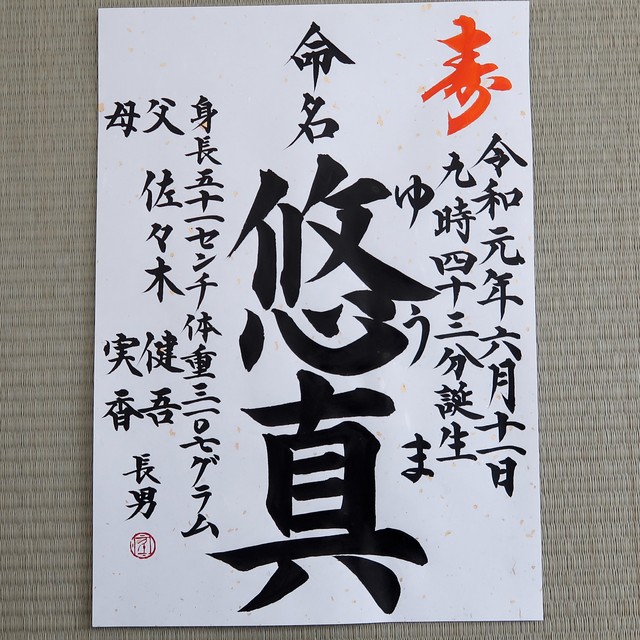 寿
令和元年六月十一日
九時四十三分誕生
ゆうま
命名
悠真
身長五十一センチ 体重三一〇七グラム
父 佐々木 健吾
母 実香
長男